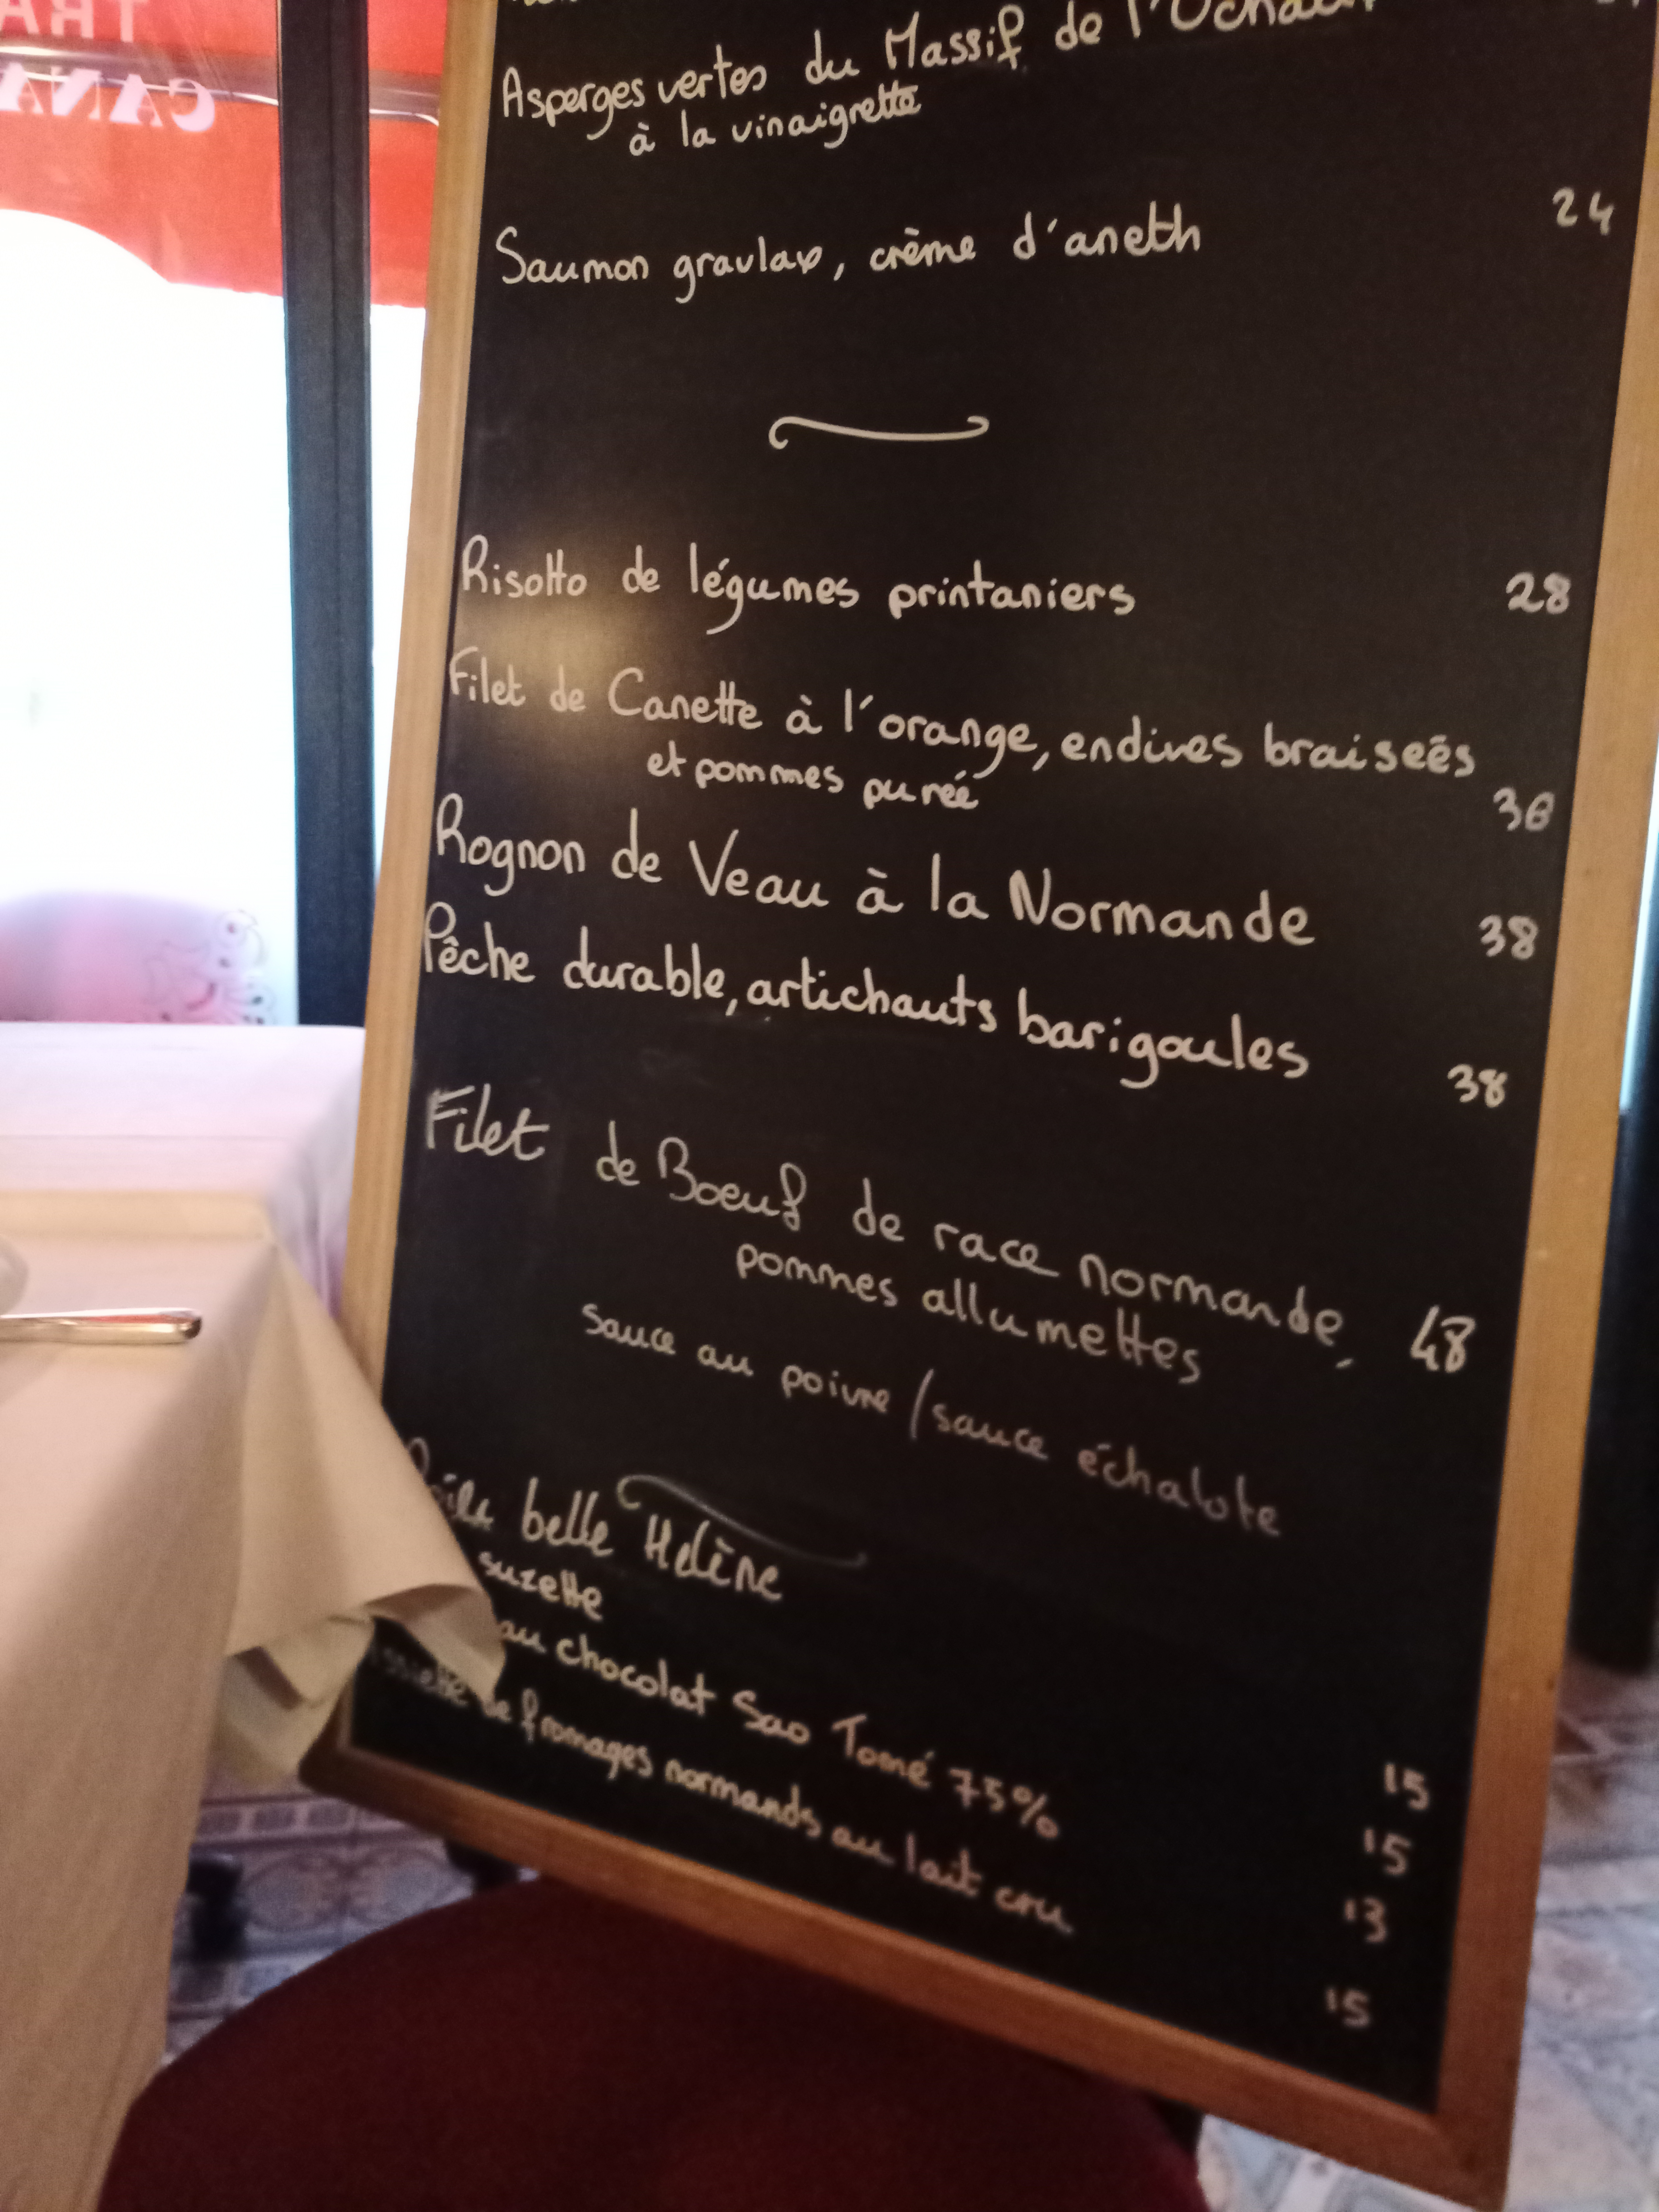 Asperges vertes du Massif de l'
à la vinaigrette
Saumon gravlax, crème d'aneth 24
Risotto de légumes printaniers 28
Filet de Canette à l'orange, endives braiseés
et pommes pureé 36
Rognon de Veau à la Normande 38
Pêche durable, artichauts barigoules 38
Filet de Boeuf de race normande, 48
pommes allumettes
Sauce au poivre / sauce échalote
belle Hélène 15
suzette 15
au chocolat Sao Tomé 75% 13
de fromages normands au lait cru 15
TRA
CANA